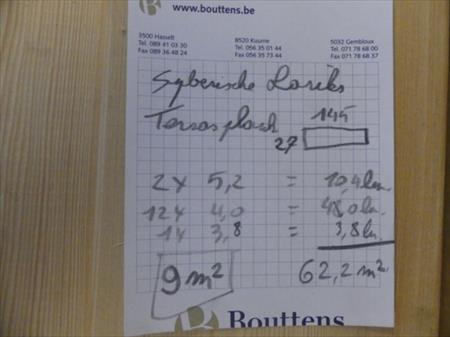 www.bouttens.be
3500 Hasselt 8520 Kuurne 5032 Gembloux
Tel. 089 41 03 30 Tel. 056 35 01 44 Tel. 071 78 68 00
Fax 089 36 48 24 Fax 056 35 73 44 Fax 071 78 68 37
Syberische Loriks
Terrasplank 145
27
2x 5,2 = 10,4 lm.
12x 4,0 = 48,0 lm.
1x 3,8 = 3,8 lm.
9 m² 62,2 m².
Bouttens